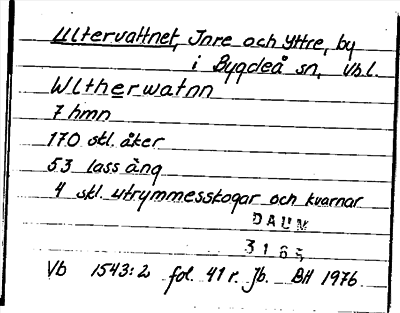 Ultervattnet, Inre och Yttre, by
i Bygdeå sn, Vb l.
Wltherwatnn
7 hmn
170 skl. åker
53 lass äng
4 skl. utrymmesskogar och kvarnar
DAUM
3165
Vb 1543:2 fol. 41 r. Jb. BH 1976